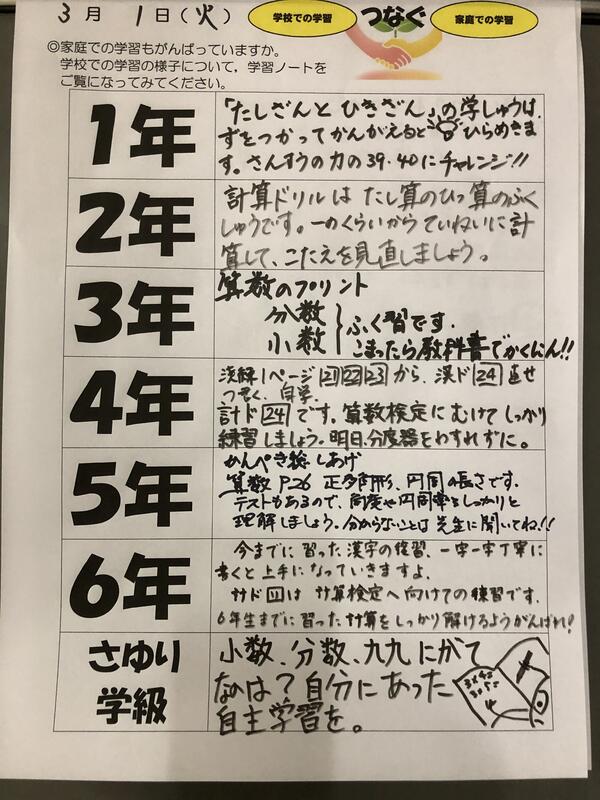 3月 1日(火)
学校での学習 つなぐ 家庭での学習
◎家庭での学習もがんばっていますか。
学校での学習の様子について，学習ノートを
ご覧になってみてください。
1年
「たしざんと ひきざん」の学しゅうは、
ずをつかってかんがえると ひらめきま
す。さんすうの力の39・40にチャレンジ!!
2年
計算ドリルは たし算のひっ算のふく
しゅうです。一のくらいから ていねいに計
算して、こたえを見直しましょう。
3年
算数のプリント
分数
小数
ふく習です。
こまったら教科書でかくにん!!
4年
漢練1ページ 21 22 23 から、漢ド 24 直せ
つなぐ、自学
計ド 24 です。算数検定にむけてしっかり
練習しましょう。明日、分度器をわすれずに。
5年
かんぺき しあげ
算数 P26 正多角形、円周の長さです。
テストもあるので、角度や円周率をしっかりと
理解しましょう。分からないことは先生に聞いてね!!
6年
今までに習った漢字の復習、一字一字丁寧に
書くと上手になっていきますよ。
計算検定へ向けての練習です。
6年生までに習った計算をしっかり解けるようがんばれ!
さゆり
学級
小数、分数、九九にがて
なのは？自分にあった
自主学習を。